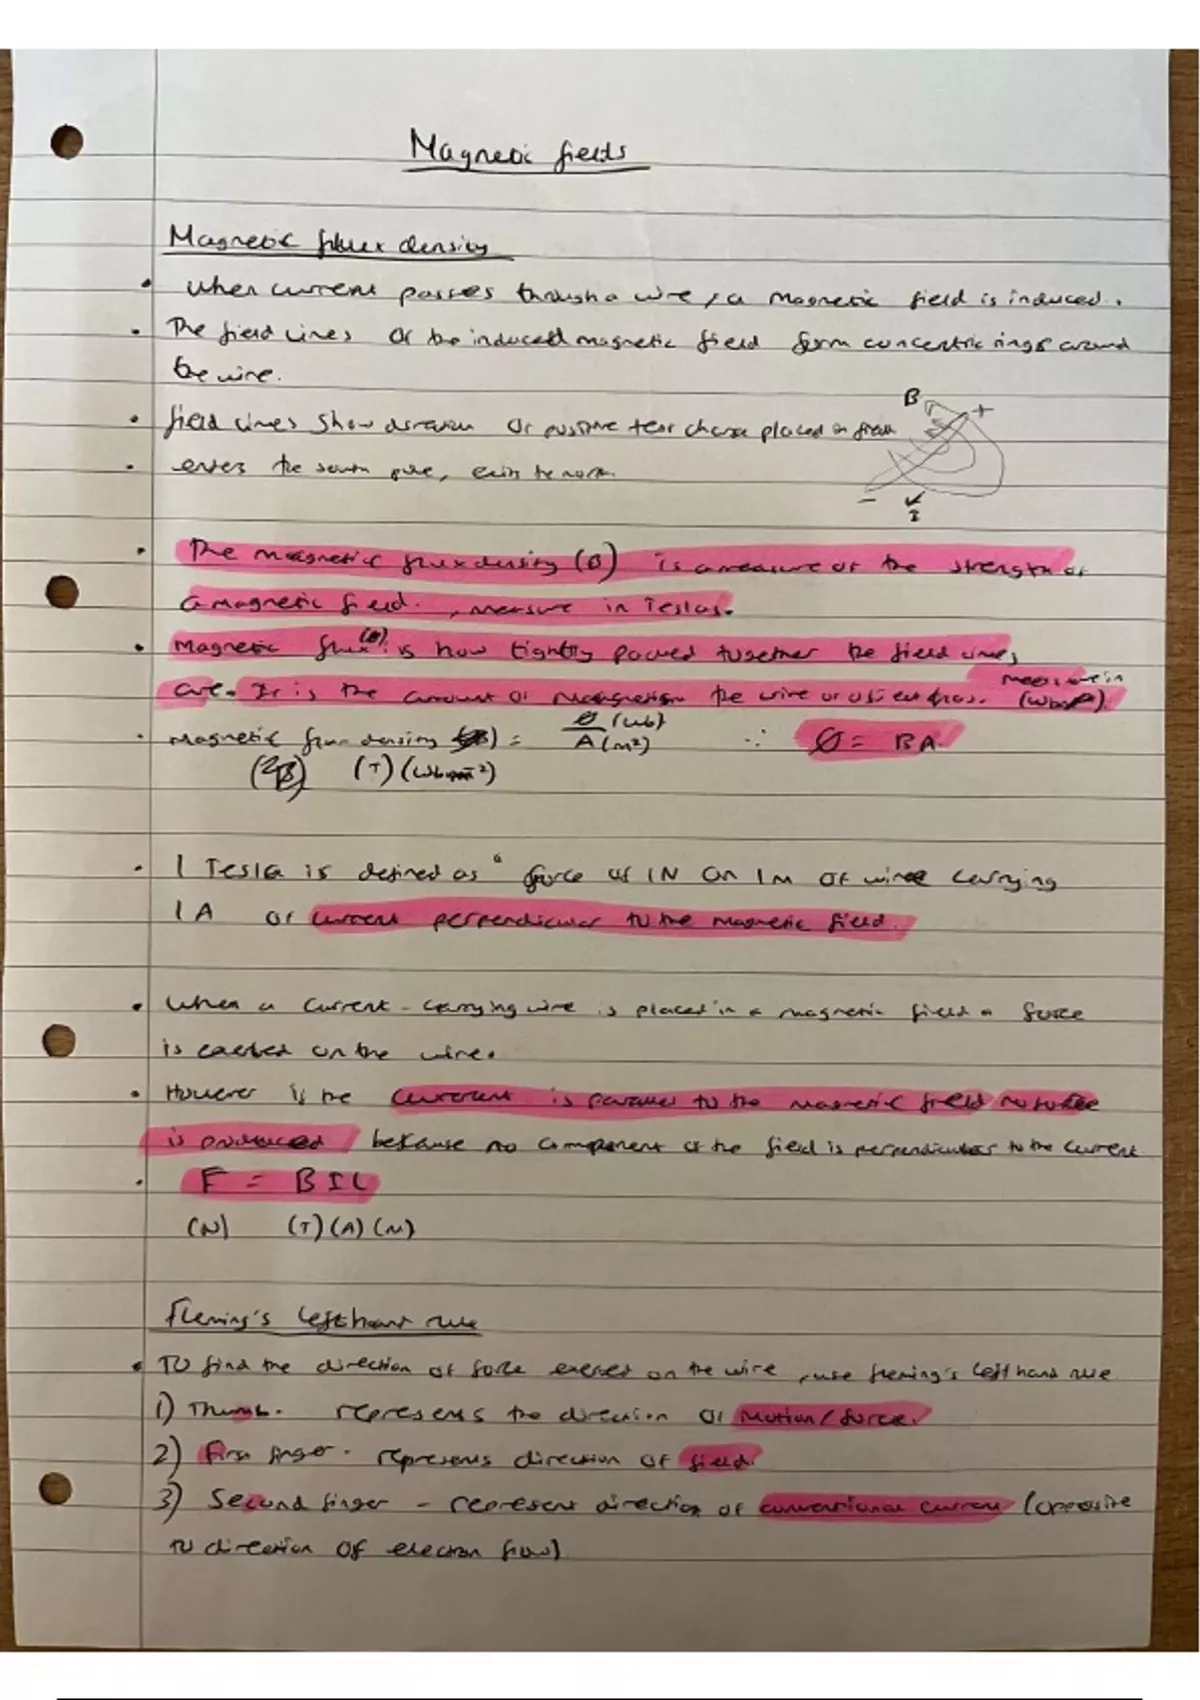 Magnetic fields
Magnetic flux density
• When current passes through a wire, a magnetic field is induced.
• The field lines of the induced magnetic field form concentric rings around
the wire.
• field lines show direction of positive test charge placed in field
B +
• enters the south pole, exits the north.
- I
• The magnetic flux density (B) is a measure of the strength of
a magnetic field. , measure in Teslas.
• Magnetic flux (Ø) is how tightly packed together the field lines
are. It is the amount of magnetism the wire or object has. measure in (Wb)
• Magnetic flux density = Ø (Wb) / A (m²) ∴ Ø = BA
(B) (T) (Wb m⁻²)
• 1 Tesla is defined as a force of 1N on 1m of wire carrying
1A of current perpendicular to the magnetic field.
• When a current-carrying wire is placed in a magnetic field a force
is exerted on the wire.
• However is the current is parallel to the magnetic field no force
is produced because no component of the field is perpendicular to the current
• F = BIL
(N) (T) (A) (m)
Fleming's left hand rule
• To find the direction of force exerted on the wire, use fleming's left hand rule
1) Thumb - represents the direction of motion/force.
2) First finger - represents direction of field.
3) Second finger - represent direction of conventional current (opposite
to direction of electron flow)